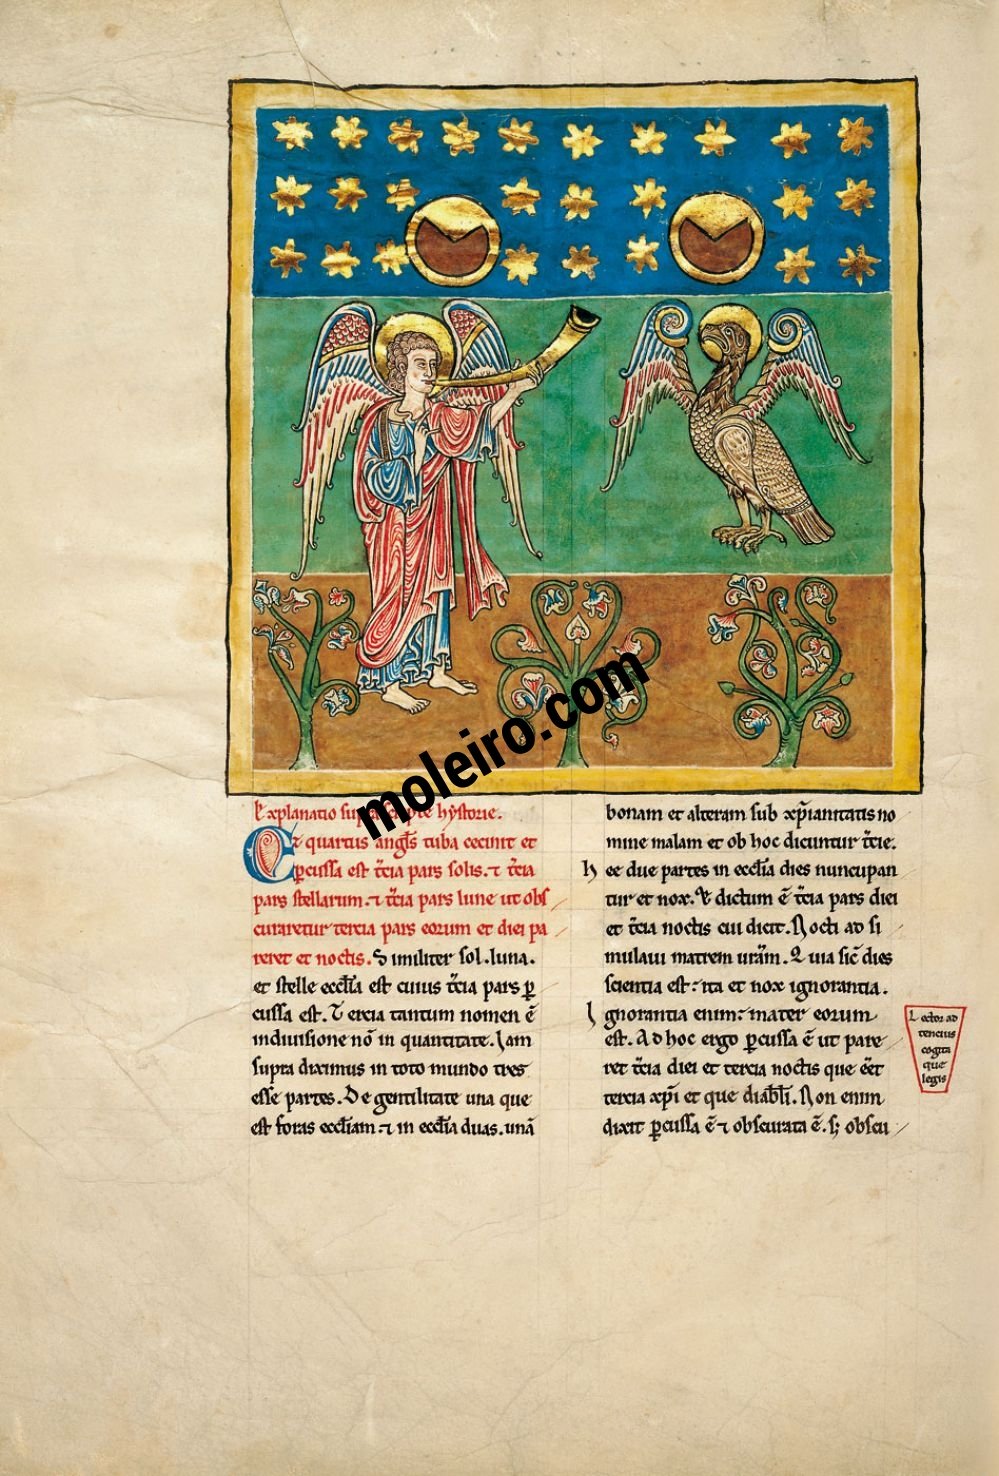 moleiro.com
Explanatio suprascripte hystorie.
Et quartus angl̅s tuba cecinit et
p̱cussa est t̅cia pars solis. ⁊ t̅cia
pars stellarum. ⁊ t̅cia pars lune ut obs
curaretur tercia pars eorum et diei pa
reret et noctis. Similiter sol. luna.
et stelle eccl̅ia est cuius t̅cia pars p̱
cussa est. Tercia tantum nomen e̅
indiuisione no̅ in quantitate. Iam
supra diximus in toto mundo tres
esse partes. De gentilitate una que
est foras eccl̅iam ⁊ in eccl̅ia duas. una̅
bonam et alteram sub xp̅ianitatis no
mine malam et ob hoc dicuntur t̅cie.
hee due partes in eccl̅ia dies nuncupan
tur et nox. Vt dictum e̅ t̅cia pars diei
et t̅cia noctis cui dicit. Nocti ad si
mulaui matrem ura̅m. Quia sic̅ dies
scientia est: ita et nox ignorantia.
Ignorantia enim: mater eorum
est. Ad hoc ergo p̱cussa e̅ ut pare
ret t̅cia diei et tercia noctis que e̅et
tercia xp̅i et que diabl̅i. Non enim
dixit p̱cussa e̅ ⁊ obscurata e̅. s; obscu
Lector ad
tencius
cogita
que
legis